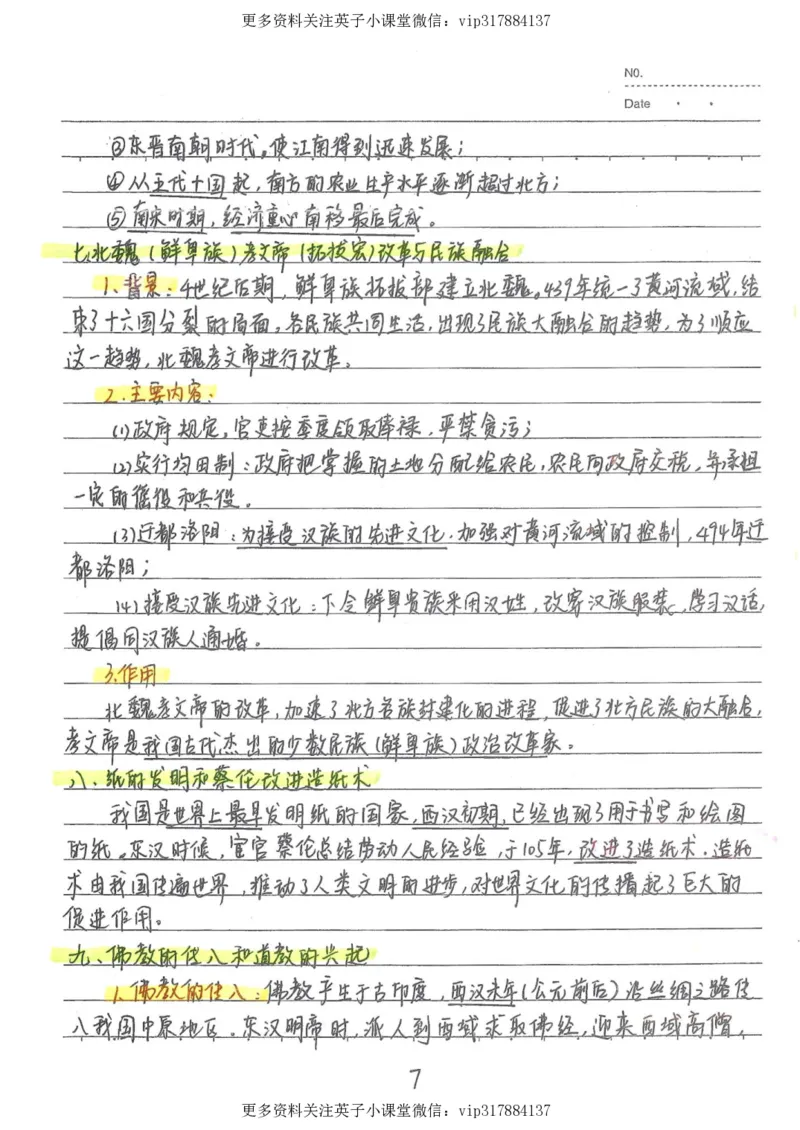 更多资料关注英子小课堂微信：vip317884137
NO.
Date
③东晋南朝时代，使江南得到迅速发展；
④从五代十国起，南方的农业生产水平逐渐超过北方；
⑤南宋时期，经济重心南移最后完成。
七、北魏（鲜卑族）孝文帝（拓拔宏）改革与民族融合
1、背景：4世纪后期，鲜卑族拓拔部建立北魏。439年统一了黄河流域，结
束了十六国分裂的局面。各民族共同生活，出现了民族大融合的趋势，为了顺应
这一趋势，北魏孝文帝进行改革。
2.主要内容：
(1)政府规定，官吏按季度领取俸禄，严禁贪污；
(2)实行均田制：政府把掌握的土地分配给农民，农民向政府交税，并承担
一定的徭役和兵役。
(3)迁都洛阳：为接受汉族的先进文化，加强对黄河流域的控制，494年迁
都洛阳；
(4)接受汉族先进文化：下令鲜卑贵族采用汉姓，改穿汉族服装，学习汉话，
提倡同汉族人通婚。
3.作用
北魏孝文帝的改革，加速了北方各族封建化的进程，促进了北方民族的大融合，
孝文帝是我国古代杰出的少数民族（鲜卑族）政治改革家。
八、纸的发明和蔡伦改进造纸术
我国是世界上最早发明纸的国家，西汉初期，已经出现了用于书写和绘图
的纸。东汉时候，宦官蔡伦总结劳动人民经验，于105年，改进了造纸术。造纸
术由我国传遍世界，推动了人类文明的进步，对世界文化的传播起了巨大的
促进作用。
九、佛教的传入和道教的兴起
1.佛教的传入：佛教产生于古印度，西汉末年（公元前后）沿丝绸之路传
入我国中原地区。东汉明帝时，派人到西域求取佛经，迎来西域高僧，
7
更多资料关注英子小课堂微信：vip317884137